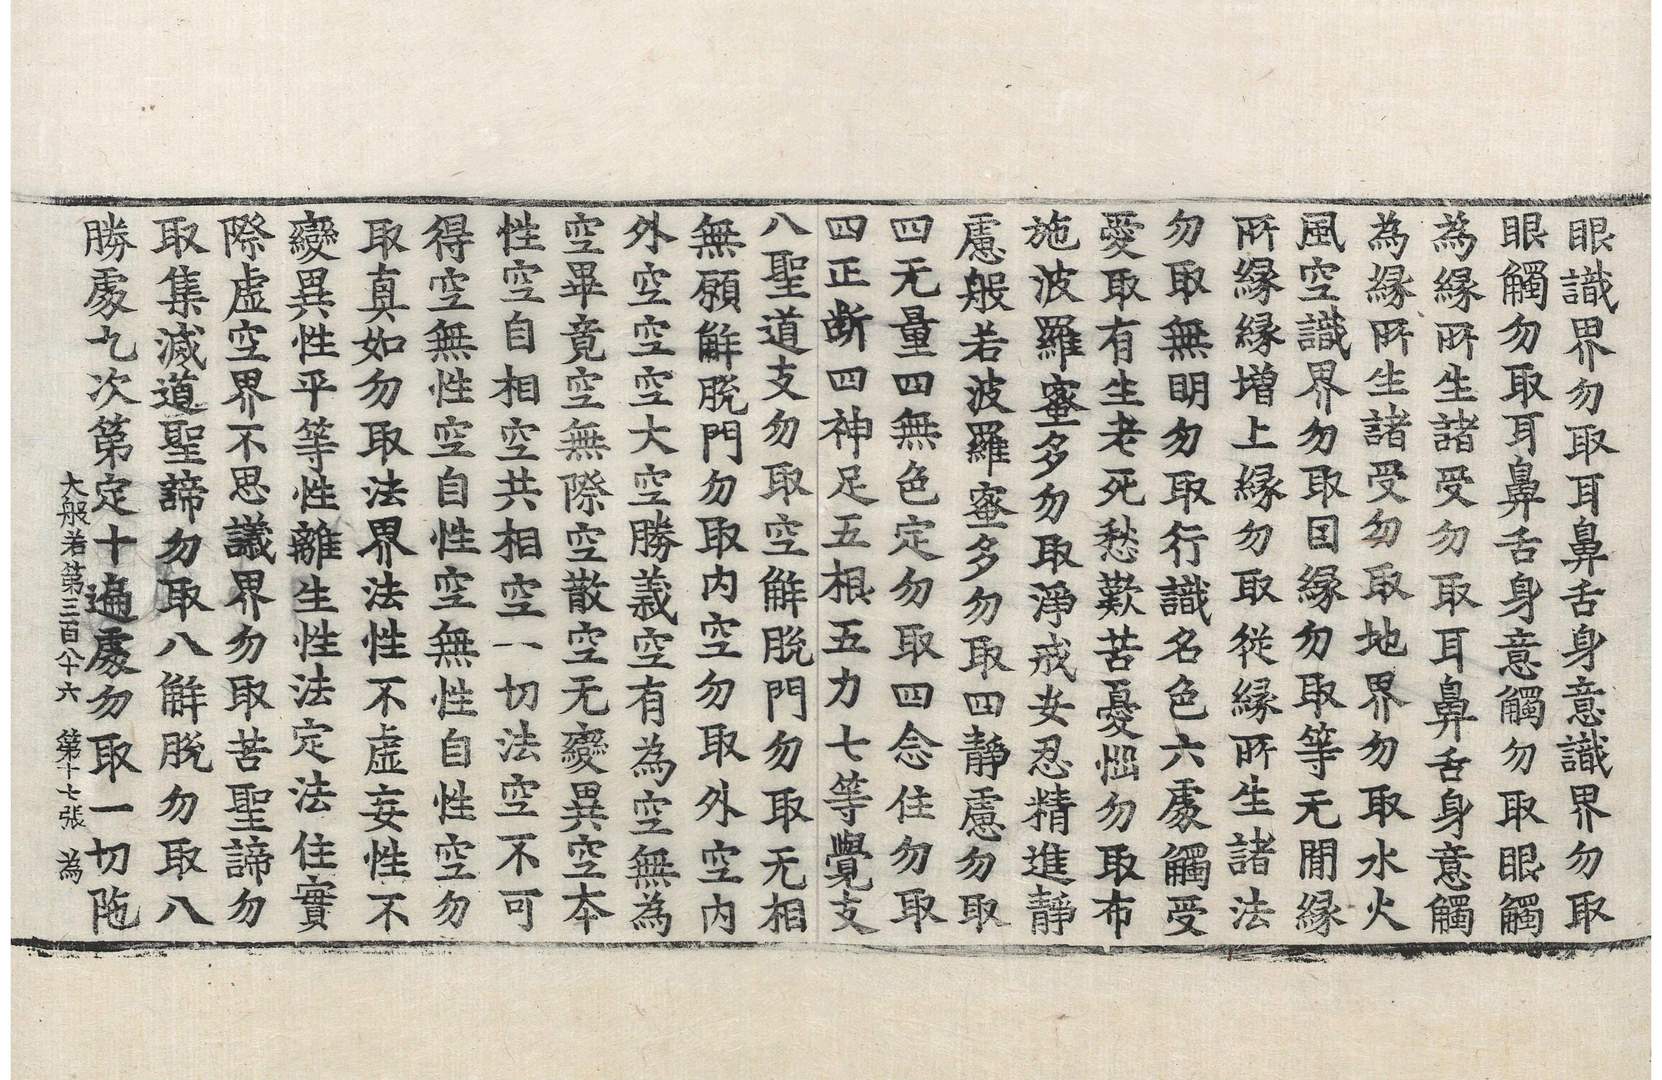 眼識界勿取耳鼻舌身意識界勿取
眼觸勿取耳鼻舌身意觸勿取眼觸
為緣所生諸受勿取耳鼻舌身意觸
為緣所生諸受勿取地界勿取水火
風空識界勿取因緣勿取等无間緣
所緣緣增上緣勿取從緣所生諸法
勿取無明勿取行識名色六處觸受
愛取有生老死愁歎苦憂惱勿取布
施波羅蜜多勿取淨戒安忍精進靜
慮般若波羅蜜多勿取四靜慮勿取
四无量四無色定勿取四念住勿取
四正斷四神足五根五力七等覺支
八聖道支勿取空解脫門勿取无相
無願解脫門勿取內空勿取外空內
外空空空大空勝義空有為空無為
空畢竟空無際空散空无變異空本
性空自相空共相空一切法空不可
得空無性空自性空無性自性空勿
取真如勿取法界法性不虛妄性不
變異性平等性離生性法定法住實
際虛空界不思議界勿取苦聖諦勿
取集滅道聖諦勿取八解脫勿取八
勝處九次第定十遍處勿取一切陁
大般若第三百八十六 第十七張 為